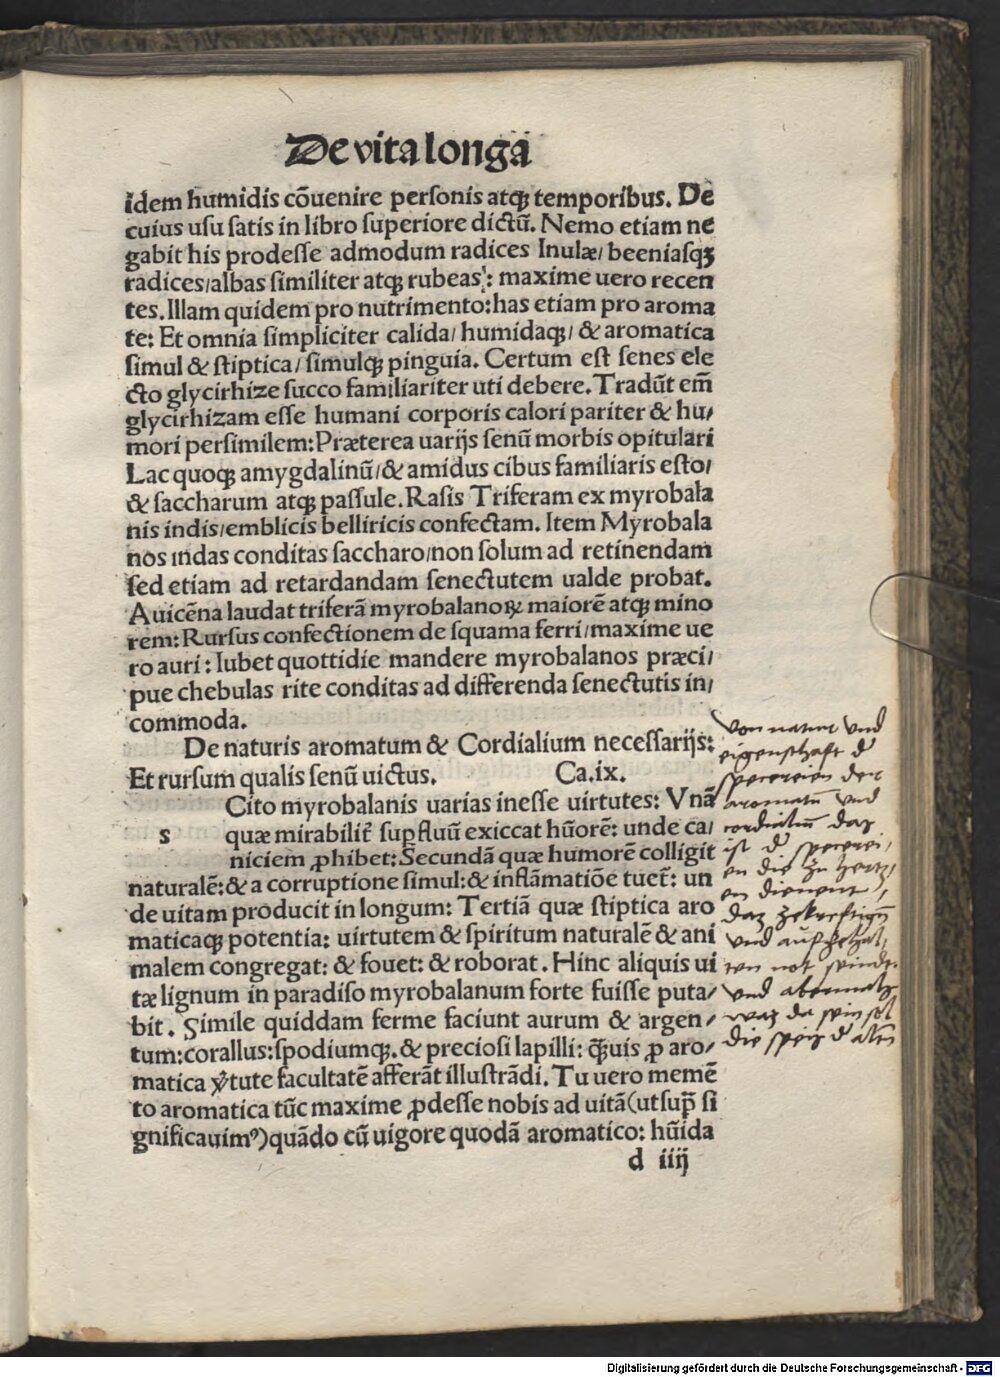 De vita longa
idem humidis cōuenire personis atqꝫ temporibus. De
cuius usu satis in libro superiore dictū. Nemo etiam ne
gabit his prodesse admodum radices Inulæ/ beeniasqꝫ
radices/albas similiter atqꝫ rubeas: maxime uero recen
tes. Illam quidem pro nutrimento: has etiam pro aroma
te: Et omnia simpliciter calida/ humidaqꝫ/ & aromatica
simul & stiptica/ simulqꝫ pinguia. Certum est senes ele
cto glycirhize succo familiariter uti debere. Tradūt em̄
glycirhizam esse humani corporis calori pariter & hu/
mori persimilem: Præterea uarijs senū morbis opitulari
Lac quoqꝫ amygdalinū/& amidus cibus familiaris esto/
& saccharum atqꝫ passule. Rasis Triferam ex myrobala
nis indis/emblicis belliricis confectam. Item Myrobala
nos indas conditas saccharo/non solum ad retinendam
sed etiam ad retardandam senectutem ualde probat.
Auicēna laudat triferā myrobalanoꝝ maiorē atqꝫ mino
rem: Rursus confectionem de squama ferri/maxime ue
ro auri: Iubet quottidie mandere myrobalanos præci/
pue chebulas rite conditas ad differenda senectutis in/
commoda.
De naturis aromatum & Cordialium necessarijs:
Et rursum qualis senū uictus. Ca.ix.
Cito myrobalanis uarias inesse uirtutes: Vnā
s quæ mirabilit̄ supfluū exiccat hūorē: unde ca/
niciem ꝓhibet: Secundā quæ humorē colligit
naturalē: & a corruptione simul: & inflāmatiōe tuet̄: un
de uitam producit in longum: Tertiā quæ stiptica aro
maticaqꝫ potentia: uirtutem & spiritum naturalē & ani
malem congregat: & fouet: & roborat. Hinc aliquis ui
tæ lignum in paradiso myrobalanum forte fuisse puta/
bit. Simile quiddam ferme faciunt aurum & argen/
tum: corallus: spodiumqꝫ. & preciosi lapilli: q̄uis ꝓ aro/
matica v̄tute facultatē afferāt illustrādi. Tu uero memē
to aromatica tūc maxime ꝓdesse nobis ad uitā(ut sup̄ si
gnificauimꝰ)quādo cū uigore quodā aromatico: hūida
d iiij
von natur und
eigenschaft d
specereien der
aromatū und
cordialiū daz
ist d specerei/
en die zu hertz/
en dienent/
daz zekreftigē
und aufzehal/
ten not seindt.
und abermalz
waz da sein sol
die speis d altē
Digitalisierung gefördert durch die Deutsche Forschungsgemeinschaft - DFG